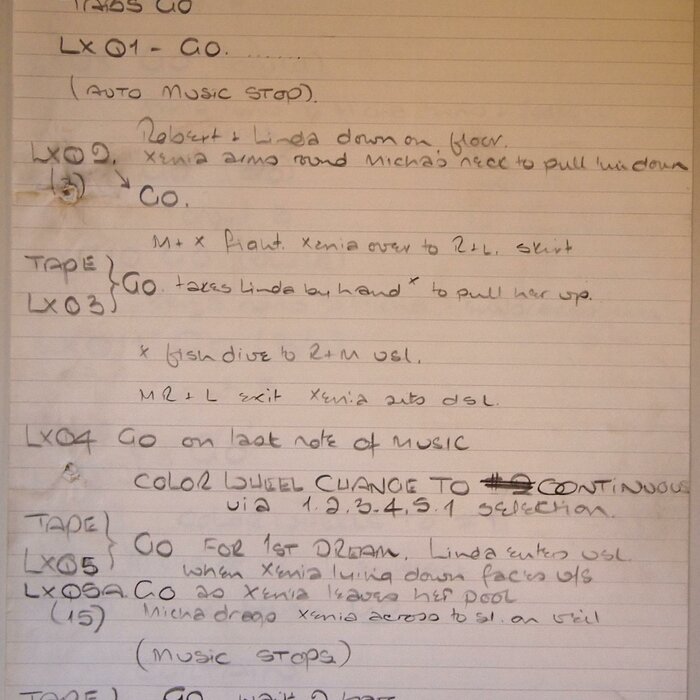 TABS GO
LXQ1 - GO. ......
(AUTO MUSIC STOP).
Robert + Linda down on floor.
LXQ2. Xenia arms round Michas neck to pull him down
(3) GO.
M + X fight. Xenia over to R+L. skirt
TAPE
LXQ3 } GO. takes Linda by hand x to pull her up.
x fish dive to R+M USL.
M R + L exit Xenia DSL.
LXQ4 GO on last note of MUSIC
COLOR WHEEL CHANGE TO CONTINUOUS
via 1.2.3.4.5.1 selection.
TAPE
LXQ5 } GO FOR 1ST DREAM. Linda enters USL.
when Xenia lying down faces U/S
LXQ5A GO as Xenia leaves her pool
(15) Micha drags Xenia across to SL. on veil
(MUSIC STOPS)
TAPE } GO wait 2